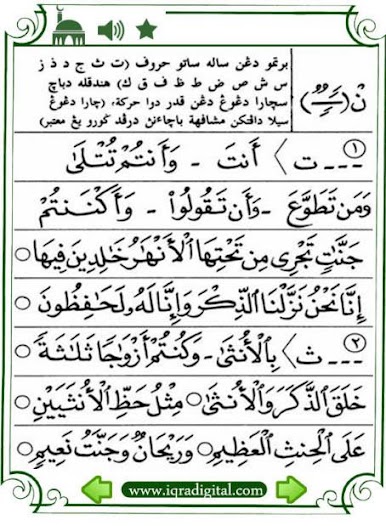 نْ (ـًـٍـٌ)
برتمو دڠن ساله ساتو حروف (ت ث ج د ذ ز
س ش ص ض ط ظ ف ق ك) هندقله دباچ
سچارا دڠوڠ دڠن قدر دوا حركة، (چارا دڠوڠ
سيلا دالتكن مشافهة باچاءنڽ درڤد ڬورو يڠ معتبر)
١ ــ ت〉 أَنتَ - وَأَنتُمْ تُتْلَىٰ
وَمَن تَطَوَّعَ - وَأَن تَقُولُوا۟ - وَأَكْنَنتُمْ
جَنَّٰتٍ تَجْرِى مِن تَحْتِهَا ٱلْأَنْهَٰرُ خَٰلِدِينَ فِيهَا ○
إِنَّا نَحْنُ نَزَّلْنَا ٱلذِّكْرَ وَإِنَّا لَهُۥ لَحَٰفِظُونَ ○
٢ ــ ث〉 بِٱلْأُنثَىٰ - وَكُنتُمْ أَزْوَٰجًا ثَلَٰثَةً ○
خَلَقَ ٱلذَّكَرَ وَٱلْأُنثَىٰ ○ مِثْلُ حَظِّ ٱلْأُنثَيَيْنِ ○
عَلَى ٱلْحِنثِ ٱلْعَظِيمِ ○ وَرَيْحَانٌ وَجَنَّتُ نَعِيمٍ ○
www.iqradigital.com